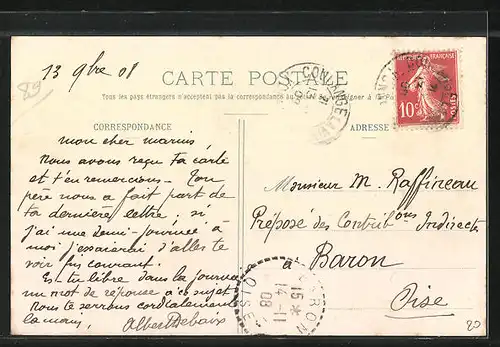 29
13 9bre 08
CARTE POSTALE
Tous les pays étrangers n'acceptent pas la correspondance au
CORRESPONDANCE
ADRESSE
10c
mon cher marius,
Nous avons reçu ta carte
et t'en remercions. Ton
père nous a fait part de
ta dernière lettre, si
j'ai une demi-journée à
moi j'essaierai d'aller te
voir fin courant.
Es-tu libre dans la journée
un mot de réponse à ce sujet
Nous te serrons cordialement
la main,
Albert Debaix
Monsieur M. Raffineau
Préposé des Contributions Indirectes
à Baron
Oise
BARON
15 *
14 - 11
08
OISE
20